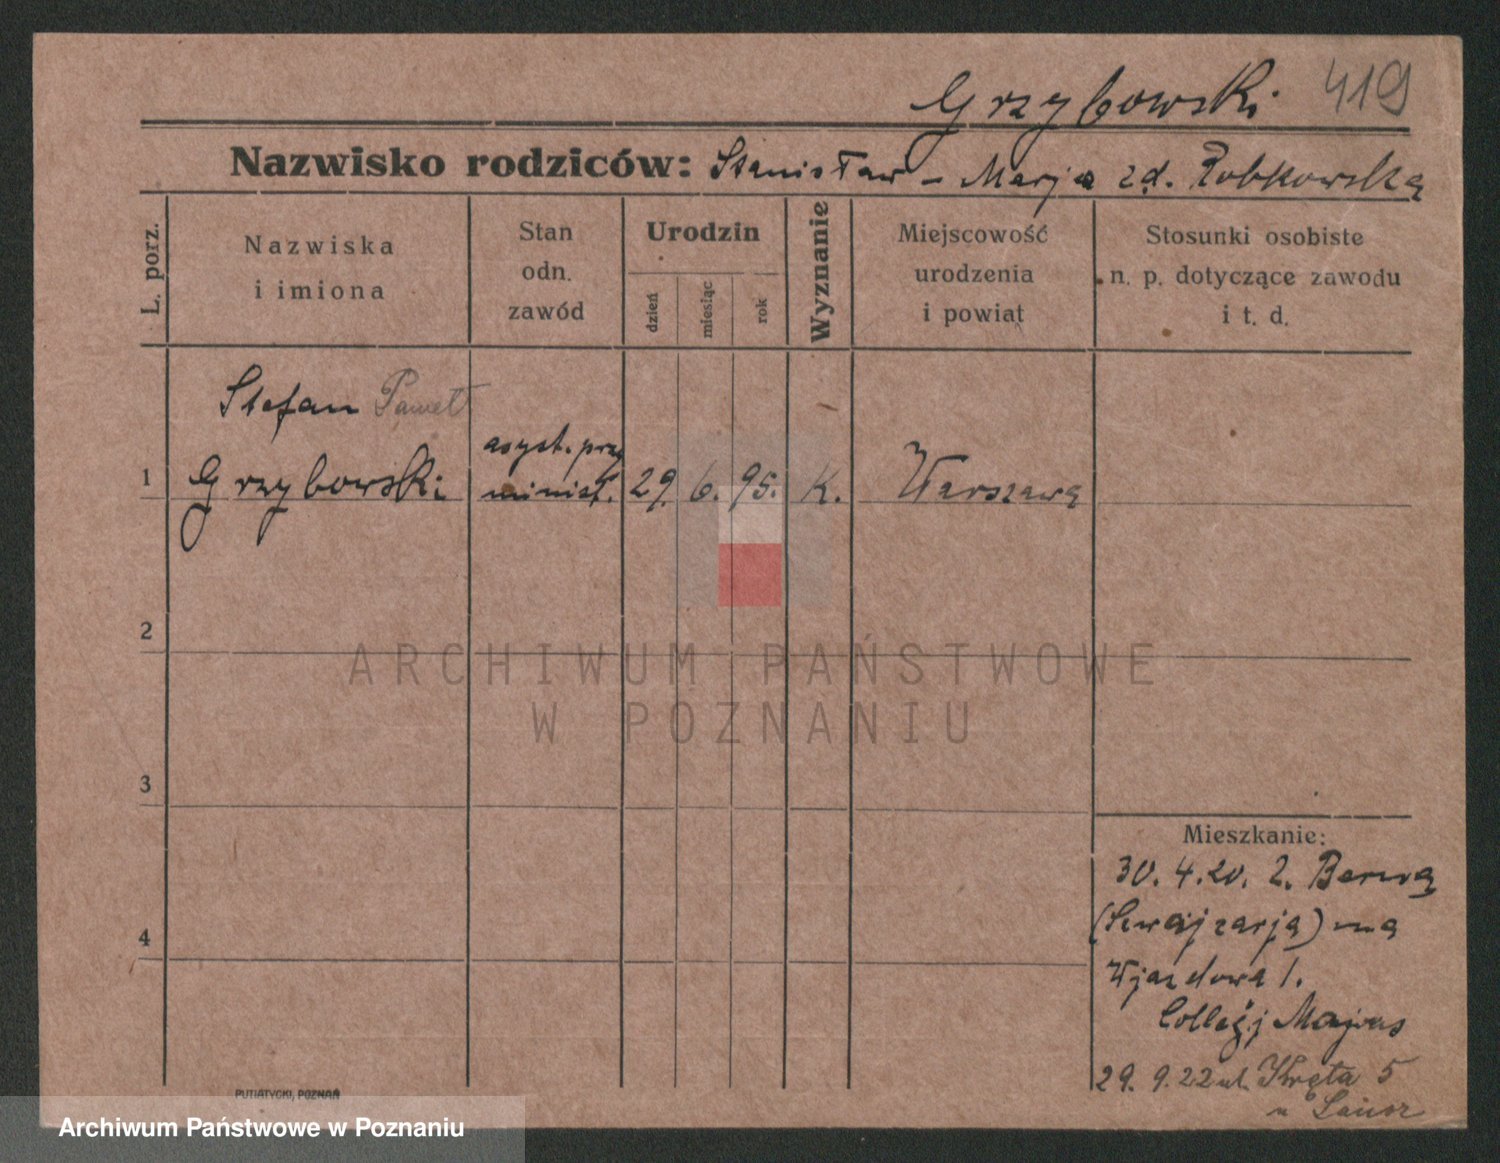 Grzybowski 419
Nazwisko rodziców: Stanisław – Marja zd. Robkowska
L. porz.
Nazwiska
i imiona
Stan
odn.
zawód
Urodzin
dzień
miesiąc
rok
Wyznanie
Miejscowość
urodzenia
i powiat
Stosunki osobiste
n. p. dotyczące zawodu
i t. d.
Stefan Paweł
1 Grzybowski
asyst. przy
minist.
29. 6. 95. K. Warszawa
2
3
4
ARCHIWUM PAŃSTWOWE
W POZNANIU
Mieszkanie:
30. 4. 20. z Berna
(Szwajcarja) na
Wjazdowa 1.
Collegj Majus
29. 9. 22 ul. Kręta 5
u
PUTIATYCKI, POZNAŃ
Archiwum Państwowe w Poznaniu